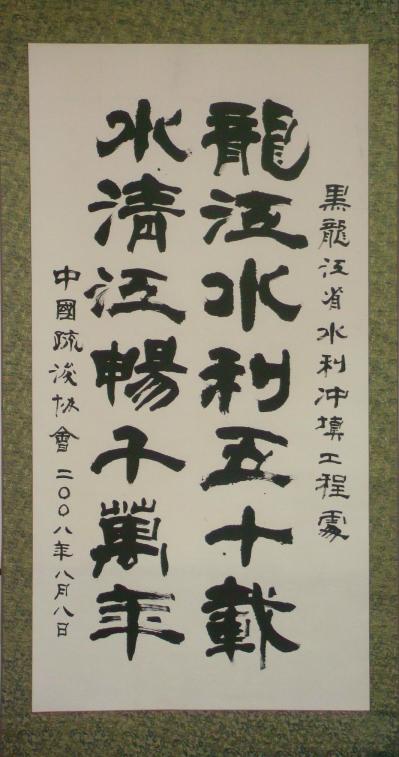 黑龍江省水利冲填工程處
龍江水利五十載
水清江暢千萬年
中國疏浚协會 二〇〇八年八月八日